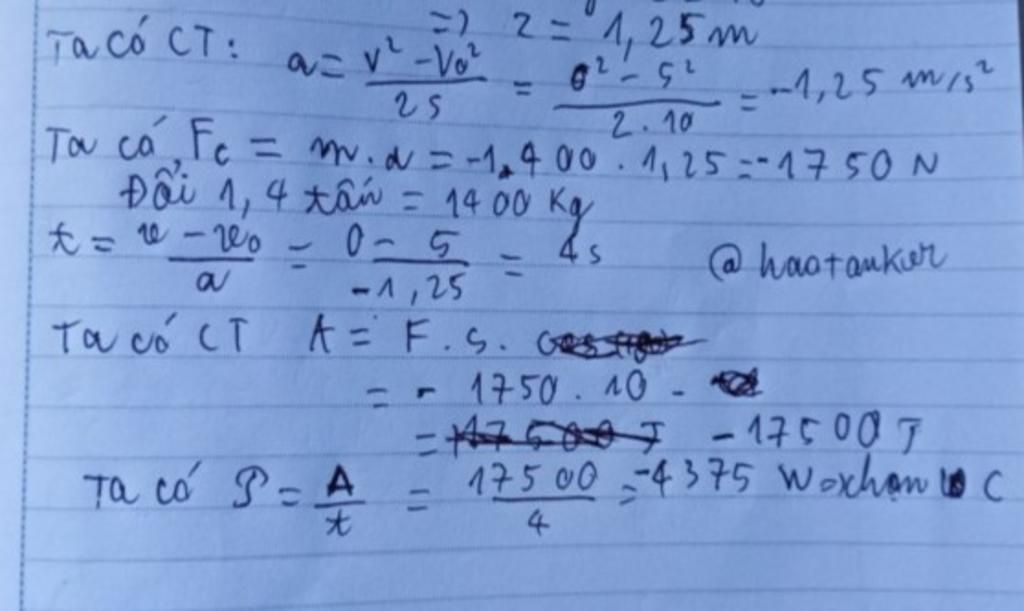 => z = 1,25m
Ta có CT: a = v² - v₀² / 2s = 0² - 5² / 2.10 = -1,25 m/s²
Ta có, Fc = m.a = -1.400 . 1,25 = -1750 N
Đổi 1,4 tấn = 1400 Kg
t = v - v₀ / a = 0 - 5 / -1,25 = 4s @haotankur
Ta có CT A = F.s.
= - 1750 . 10 -
= -17500 J
Ta có P = A / t = 17500 / 4 = -4375 W→chọn C